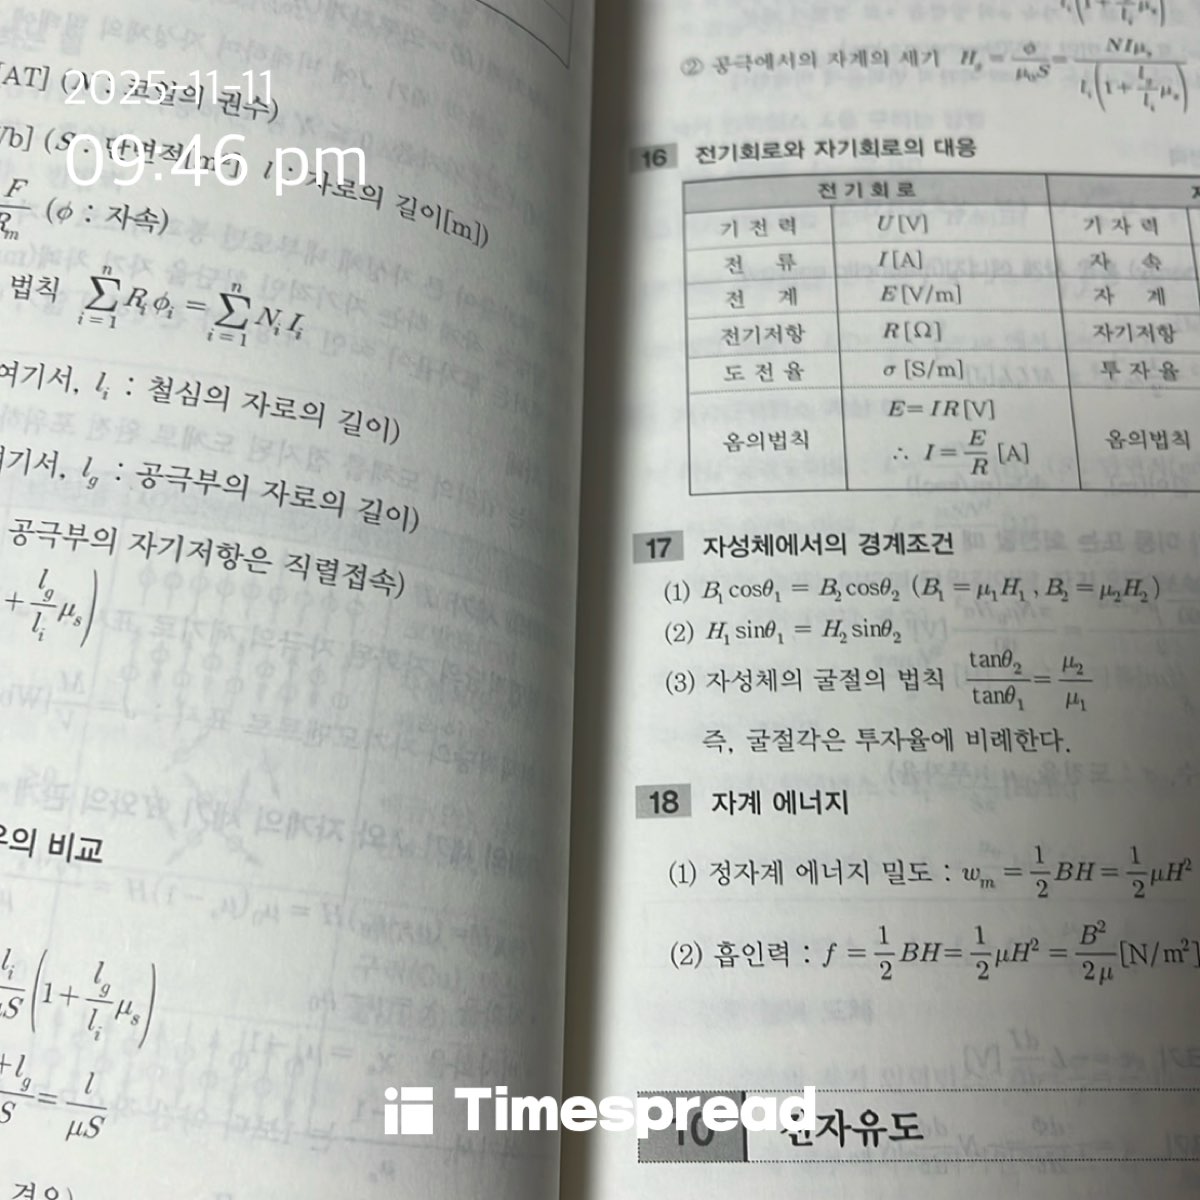 2025-11-11
09:46 pm
[AT] (N : 코일의 권수)
[Wb] (S : 단면적[m²] l : 자로의 길이[m])
F/R_m (ϕ : 자속)
법칙 ∑_{i=1}^{n} R_i ϕ_i = ∑_{i=1}^{n} N_i I_i
여기서, l_i : 철심의 자로의 길이)
여기서, l_g : 공극부의 자로의 길이)
공극부의 자기저항은 직렬접속)
+ l_g/l_i μ_s)
의 비교
l_i/μS (1 + l_g/l_i μ_s)
+l_g/S = l/μS
경우)
② 공극에서의 자계의 세기 H_g = ϕ/μ₀S = NIμ_s / l_i(1 + l_g/l_i μ_s)
16 전기회로와 자기회로의 대응
전기회로
기전력 U[V] 기자력
전류 I[A] 자속
전계 E[V/m] 자계
전기저항 R[Ω] 자기저항
도전율 σ[S/m] 투자율
옴의법칙 E=IR[V] ∴ I=E/R [A] 옴의법칙
17 자성체에서의 경계조건
(1) B₁cosθ₁ = B₂cosθ₂ (B₁ = μ₁H₁, B₂ = μ₂H₂)
(2) H₁sinθ₁ = H₂sinθ₂
(3) 자성체의 굴절의 법칙 tanθ₂/tanθ₁ = μ₂/μ₁
즉, 굴절각은 투자율에 비례한다.
18 자계 에너지
(1) 정자계 에너지 밀도 : w_m = 1/2 BH = 1/2 μH²
(2) 흡인력 : f = 1/2 BH = 1/2 μH² = B²/2μ [N/m²]
10 전자유도
Timespread